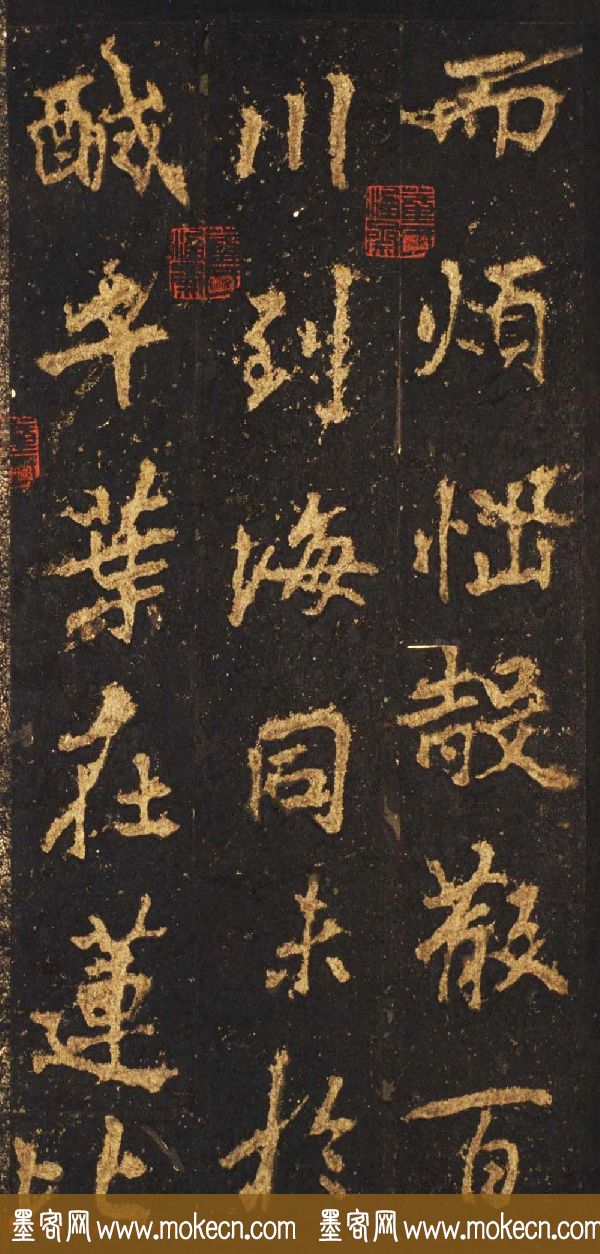 而煩惱殼散百
川到海同未於
醎千葉在蓮比
墨客网 www.mokecn.com 墨客网 www.mokecn.com